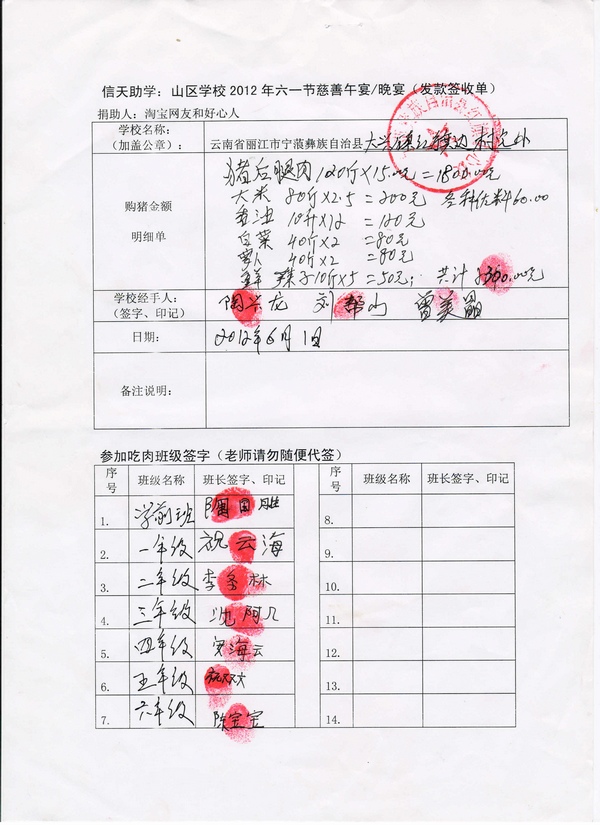 信天助学：山区学校2012年六一节慈善午宴/晚宴（发款签收单）
捐助人：淘宝网友和好心人
学校名称：
（加盖公章）：
云南省丽江市宁蒗彝族自治县大兴镇红旗边村完小
购猪金额
明细单
猪后腿肉120斤×15.00元=1800.00元
大米 80斤×2.5=200元 各种佐料60.00
香油 10斤×12=120元
白菜 40斤×2=80元
萝卜 40斤×2=80元
辣子10斤×5=50元； 共计2390.00元
学校经手人：
（签字、印记）
陶兴龙 刘帮 曾美
日期：
2012年6月1日
备注说明：
参加吃肉班级签字（老师请勿随便代签）
序号 班级名称 班长签字、印记 序号 班级名称 班长签字、印记
1. 学前班 陶国胜 8.
2. 一年级 祝云海 9.
3. 二年级 李冬林 10.
4. 三年级 沈阿几 11.
5. 四年级 海云 12.
6. 五年级 双双 13.
7. 六年级 陈宝宝 14.